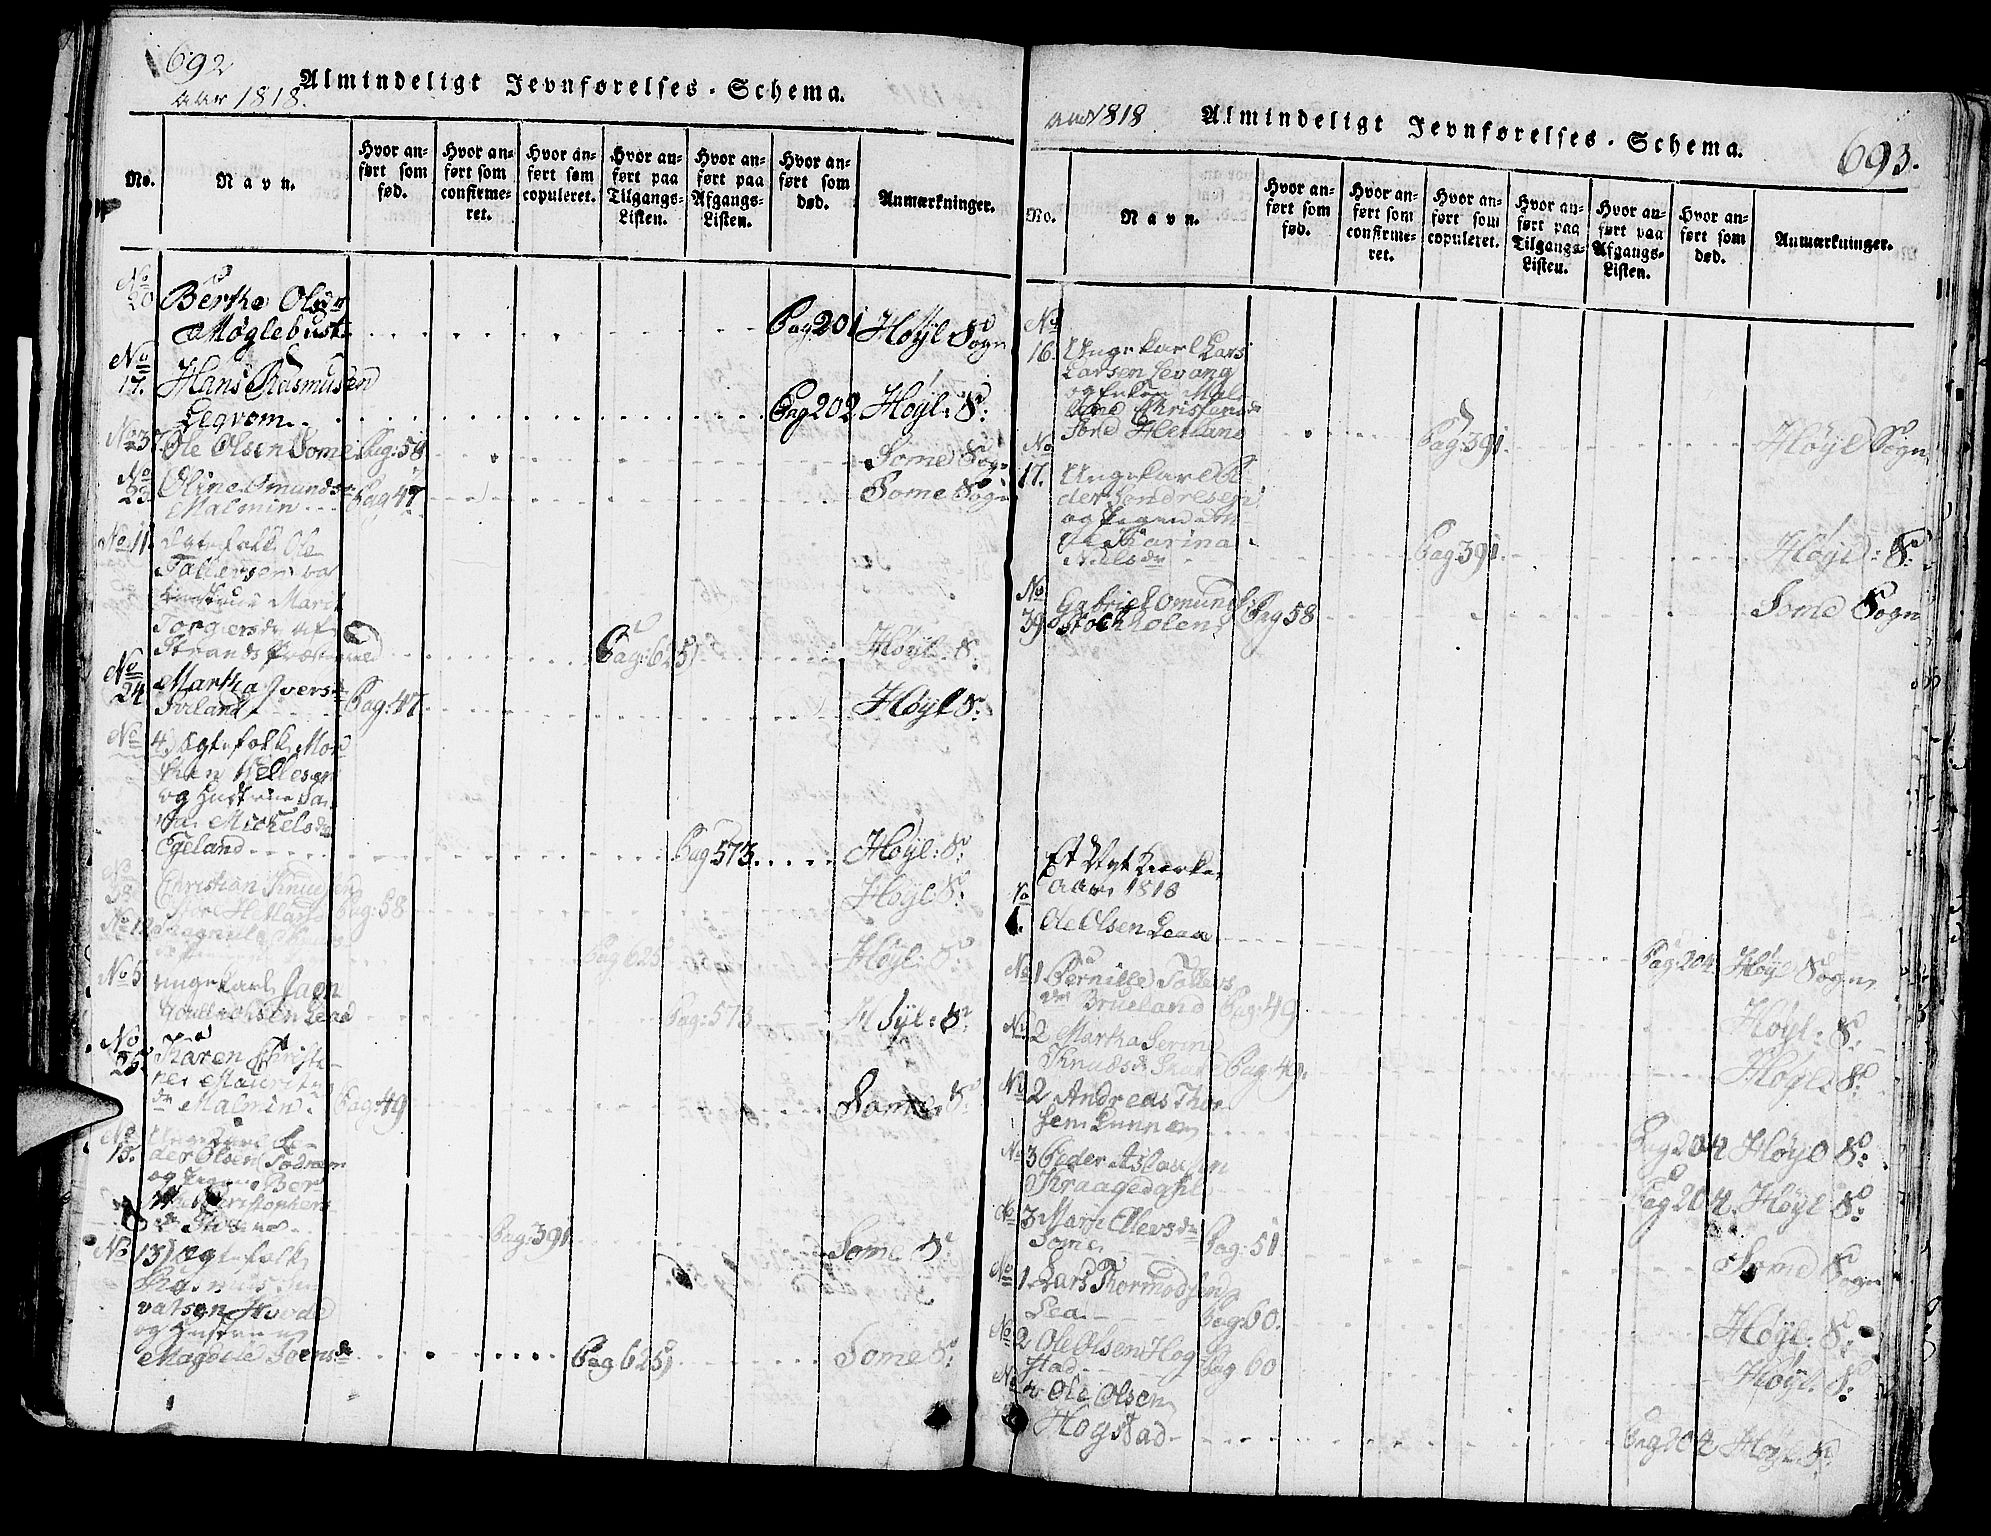 692
aar 1818.
Almindeligt Jevnførelses-Schema.
No.
Navn.
Hvor anført som fød.
Hvor anført som confirmeret.
Hvor anført som copuleret.
Hvor anført paa Tilgangs-Listen.
Hvor anført paa Afgangs-Listen.
Hvor anført som død.
Anmærkninger.
No 20 Berthe Olsdr
Møglebust Pag 201 Høyl Sogn
No 17. Hans Rasmusen
Legvom Pag 202 Høyl: S:
No 37 Ole Olsen Some Pag: 58 Some Sogn
No 23 Oline Omundsdr
Malmin Pag 47 Some Sogn
No 11. Egtefolk Ole
Tallersen
Marit
Torgersdr af
Strands Pag: 625 Høyl. S:
No 24 Martha Iversdr
Pag: 47 Høyl S:
No 4 Ægtefolk Mor
ten
og Hustrue Sa
ra Michelsdr
Egeland Pag 573 Høyl: S:
No 38 Christian Knudsen
Store Hetland Pag: 58 Høyl: S:
No 12
Pag 625 Høyl: S:
No 5 Ungekarl
Pag: 573 Høyl: S:
No 25 Karen Christe-
ne
dr Malmin. Pag: 49 Some S:
No 15. Ungekarl Pe-
der Olsen
og Pigen Ber
the Christophers
dr Pag: 391 Some S:
No 13) Ægtefolk
Rasmus
og Hustrue
Magdele Soensdr Pag 625) Some S:
aar 1818
Almindeligt Jevnførelses-Schema.
693.
No.
Navn.
Hvor anført som fød.
Hvor anført som confirmeret.
Hvor anført som copuleret.
Hvor anført paa Tilgangs-Listen.
Hvor anført paa Afgangs-Listen.
Hvor anført som død.
Anmærkninger.
No
16. Ungekarl Lars
Larsen Sevang
og Enken Mal
ene Christensdr
Store Hetland Pag: 391. Høyl Sogn
No
17. Ungekarl Pe-
der Sondresen
og Pigen An-
ne Karina
Nielsdr Pag 391. Høyl: S:
No
39 Gabriel Omunds:
Stockholen Pag 58 Some Sogn
Et Nyt Kierke
aar 1818
No
1. Ole Olsen Leaa Pag: 204. Høyl Sogn
No 1 Pernille Tollers
dr Brueland Pag: 49 Høyl: S:
No 2 Martha Serine
Knudsdr Pag: 49. Høyl: S:
No 2 Andreas Thor
sen Lunnen Pag 204 Høyl S:
No 3 Peder Aslacksen
Kraagedahl Pag 204. Høyl S:
No 3 Marte Ellevsdr
Sogne Pag: 51 Some Sogn
No 1 Lars Thormodsen
Lea Pag: 60. Høyl: S:
No 2 Ole Olsen Hog
stad Pag 60 Høyl. S:
No 4 Ole Olsen
Hogstad Pag 204 Høyl. S: